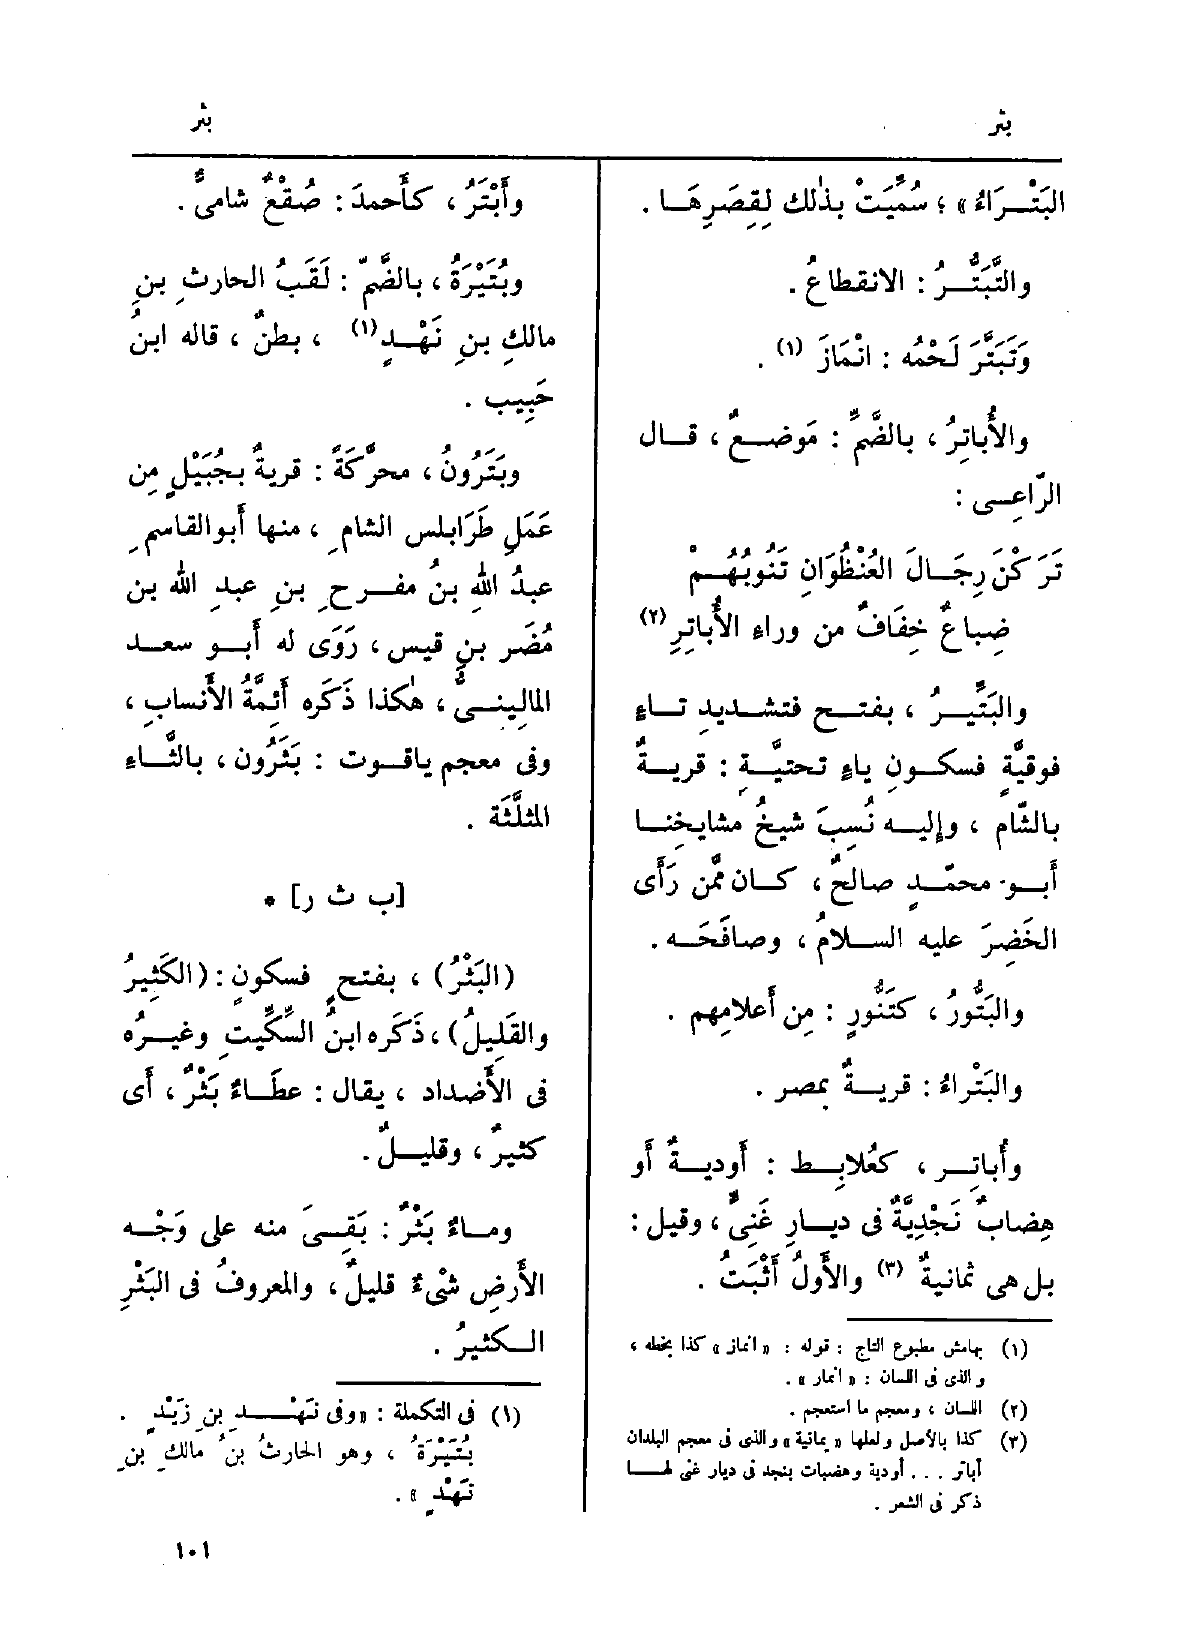 بثر
بتر
البَتْـراءُ» ؛ سُمِّيَتْ بذٰلك لِقِصَرِهَـا .
والتَّبَتُّـرُ : الانقطاعُ .
وَتَبَتَّرَ لَحْمُه : انْمَازَ (١) .
والأُباتِرُ ، بالضَّمِّ : مَوضـعٌ ، قـال
الرّاعِـى :
تَرَكْنَ رِجَـالَ العُنْظُوَانِ تَنُوبُهُـمْ
ضِباعٌ خِفَافٌ من وراءِ الأُباتِرِ (٢)
والبَتِّيـرُ ، بفتـح فتشـديدِ تـاءٍ
فوقيَّةٍ فسكـونِ ياءٍ تحتيَّـةٍ : قريـةٌ
بالشّام ، وإليـه نُسِبَ شيخُ مشايخنـا
أبـو محمّـدٍ صالحٌ ، كـان ممَّن رَأَى
الخَضِرَ عليه السـلامُ ، وصافَحَـه .
والبَتُّورُ ، كتَنُّورٍ : مِن أَعلامِهم .
والبَتْراءُ : قريـةٌ بمصر .
وأُباتِـر ، كعُلابِـط : أَوديـةٌ أَو
هِضابٌ نَجْدِيَّةٌ فى ديـارِ غَنِىٍّ ، وقيل :
بل هى ثمانيةٌ (٣) والأَولُ أَثْبَتُ .
(١) بهامش مطبوع التاج : قوله : « انماز » كذا بخطه ،
والذى فى اللسان : « انمار » .
(٢) اللسان ، ومعجم ما استعجم .
(٣) كذا بالأصل ولعلها « يمانية » والذى فى معجم البلدان
أباتر . . . أودية وهضبات بنجد فى ديار غنى لهـا
ذكر فى الشعر .
وأَبْتَرُ ، كأَحمدَ : صُقْعٌ شامىٌّ .
وبُتَيْرَةُ ، بالضَّمّ : لَقَبُ الحارثِ بنِ
مالكِ بنِ نَهْـدٍ (١) ، بطنٌ ، قاله ابنُ
حَبِيب .
وبَتَرُونُ ، محرَّكَةً : قريةٌ بجُبَيْلٍ مِن
عَمَلِ طَرَابلس الشامِ ، منها أَبو القاسمِ
عبدُ الله بنُ مفـرحِ بنِ عبدِ الله بن
مُضَر بنِ قيس ، رَوَى له أَبـو سعـد
المالِينـىُّ ، هٰكذا ذَكَره أَئمَّةُ الأَنسابِ ،
وفى معجم ياقـوت : بَثَرُون ، بالثَّـاءِ
المثلَّثَة .
[ب ث ر] *
(البَثْرُ) ، بفتحٍ فسكونٍ : (الكَثِيرُ
والقَلِيلُ) ، ذَكَره ابنُ السِّكِّيتِ وغيـرُه
فى الأَضداد ، يقال : عطَـاءٌ بَثْرٌ ، أَى
كثيرٌ ، وقليـلٌ .
ومـاءٌ بَثْرٌ : بَقِـىَ منه على وَجْـه
الأَرضِ شىْءٌ قليلٌ ، والمعروفُ فى البَثْرِ
الـكثيرُ .
(١) فى التكملة : «وفى نَهْـــدِ بنِ زَيْدٍ .
بُتَيْرَةُ ، وهو الحارثُ بنُ مالكِ بنِ
نَهْدٍ » .
١٠١